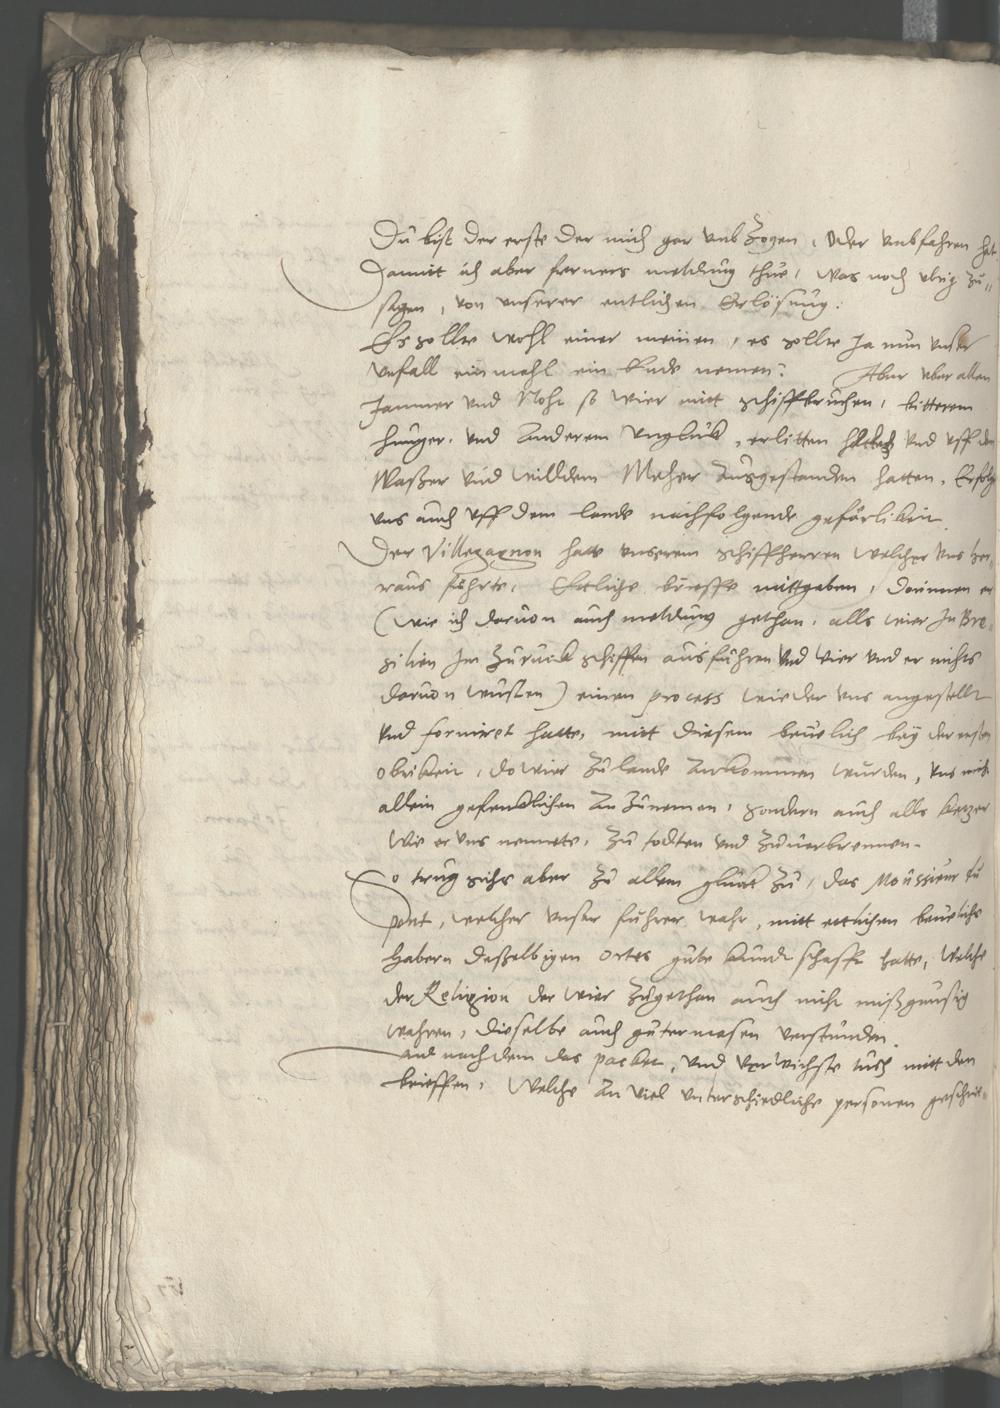 Du bist der erste der mich gar vmb Zogen, oder vmbfahren hat
Damit ich aber ferners meldung thue, Was noch vbrig zu„
sagen, von vnserer entlichen Erlösung.
Es sollte wohl einer meinen, es sollte Ja nun vnser
vnfall ein mahl ein Ende nemen. Aber vber allen
Jammer vnd Noht so wier mitt schiffbruchen, bitterem
hunger, vnd Anderem vnglück, erlitten vnd vff dem
Waßer vnd willdem Meher Ausgestanden hatten, Erfolgt
vns auch vff dem lande nachfolgende gefärlikeit.
Der Villegagnon hatt vnserem schiffherren welcher vns he„
raus führte, Ettliche brieffe mittgeben, darinnen er
(Wie ich daruon auch meldung gethan, alls wier In Bre„
silien Im Zuruck schiffen ausfuhren vnd wier vnd er nichts
daruon wusten) einen process wieder vns angestellt
vnd formiret hatte, mitt diesem beuelich bey der ersten
obrikeit, do wier Zu lande Ankommen wurden, vns nicht
allein gefenklichen An Zunemen, sondern auch alls ketzer
Wie er vns nennete, Zu todten vnd Zuuerbrennen.
So trug sichs aber Zu allem glückt Zu, das Monssieur du
pont, welcher vnser fuhrer wahr, mitt ettlichen beuelichs
habern deßelbigen ortes gute kundtschafft hatte, Welche
der Religion der wier Zugethan auch nicht mißgünstig
wahren, dieselbe auch gutermasen verstunden.
Vnd nach dem das packet, vnd verwichste tuch mitt den
brieffen, Welche An viel vnterschiedliche personen geschrie„